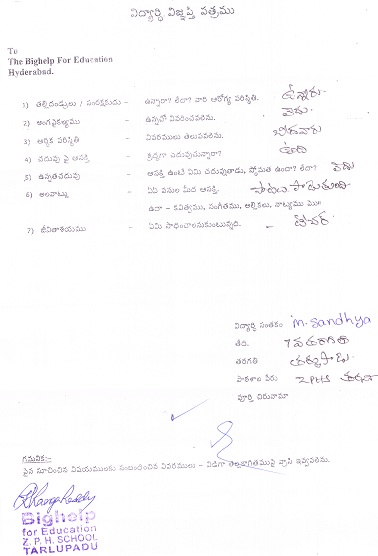 విద్యార్థి విజ్ఞప్తి పత్రము
To
The Bighelp For Education
Hyderabad.
1) తల్లిదండ్రులు / సంరక్షకుడు - ఉన్నారా? లేదా? వారి ఆరోగ్య పరిస్థితి. ఉన్నారు
2) అంగవైకల్యము - ఉన్నచో వివరించవలెను. లేదు
3) ఆర్థిక పరిస్థితి - వివరములు తెలుపవలెను. బీదవారు
4) చదువు పై ఆసక్తి - శ్రద్ధగా చదువుచున్నారా? ఉంది
5) ఉన్నతచదువు - ఆసక్తి ఉంటే ఏమి చదువుతాడు, స్తోమత ఉందా? లేదా? లేదు
6) అలవాట్లు - ఏ పనుల మీద ఆసక్తి.
ఉదా - కవిత్వము, సంగీతము, అల్లికలు, నాట్యము మొ॥
7) జీవితాశయము - ఏమి సాధించాలనుకుంటున్నది. - టీచర్
విద్యార్థి సంతకం m. sandhya
తేది. 7 వ తరగతి
తరగతి తర్లుపాడు
పాఠశాల పేరు ZPHS
పూర్తి చిరునామా
గమనిక:-
పైన సూచించిన విషయములకు సంబంధించిన వివరములు - విడిగా తెల్లకాగితముపై వ్రాసి ఇవ్వవలెను.
Bighelp
for Education
Z. P. H. SCHOOL
TARLUPADU